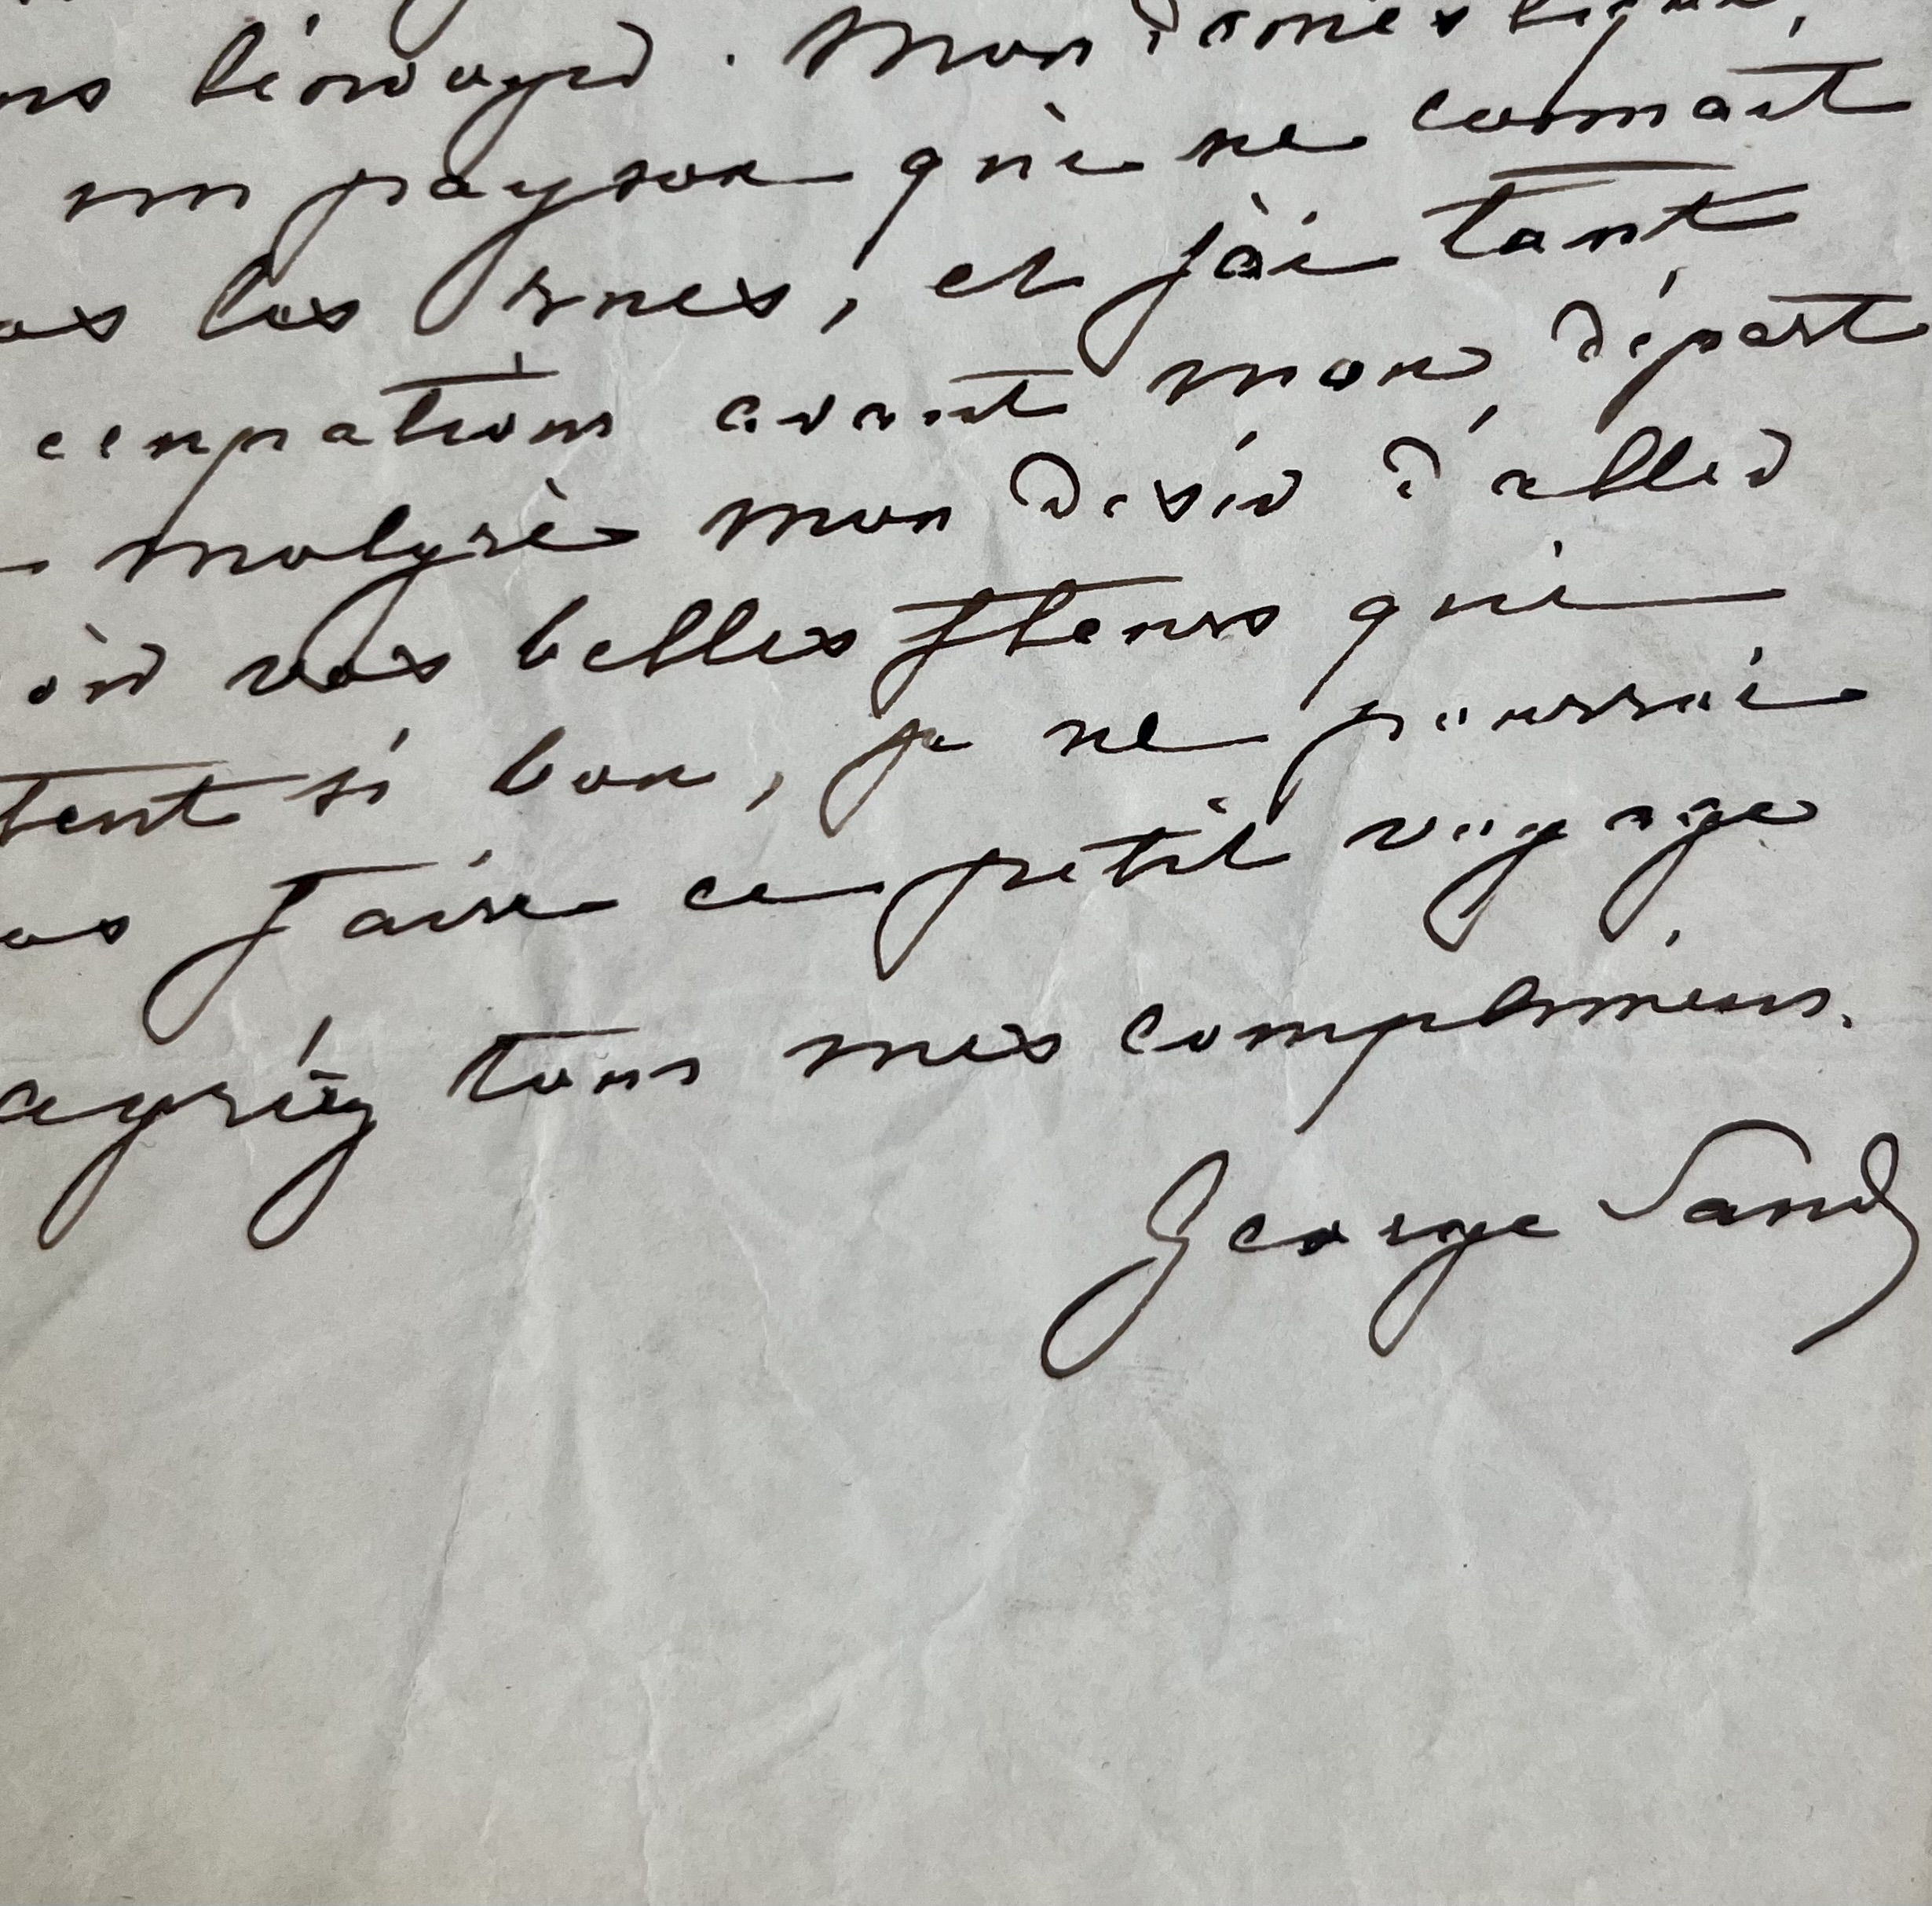 ns l'envoyer. Mon domestique,
un paysan qui ne connait
as les rues, et j'ai tant
ccupations avant mon départ
malgré mon désir d'aller
oir vos belles fleurs qui
tent si bon, je ne pourrai
as faire ce petit voyage
agréez tous mes complimens.
George Sand